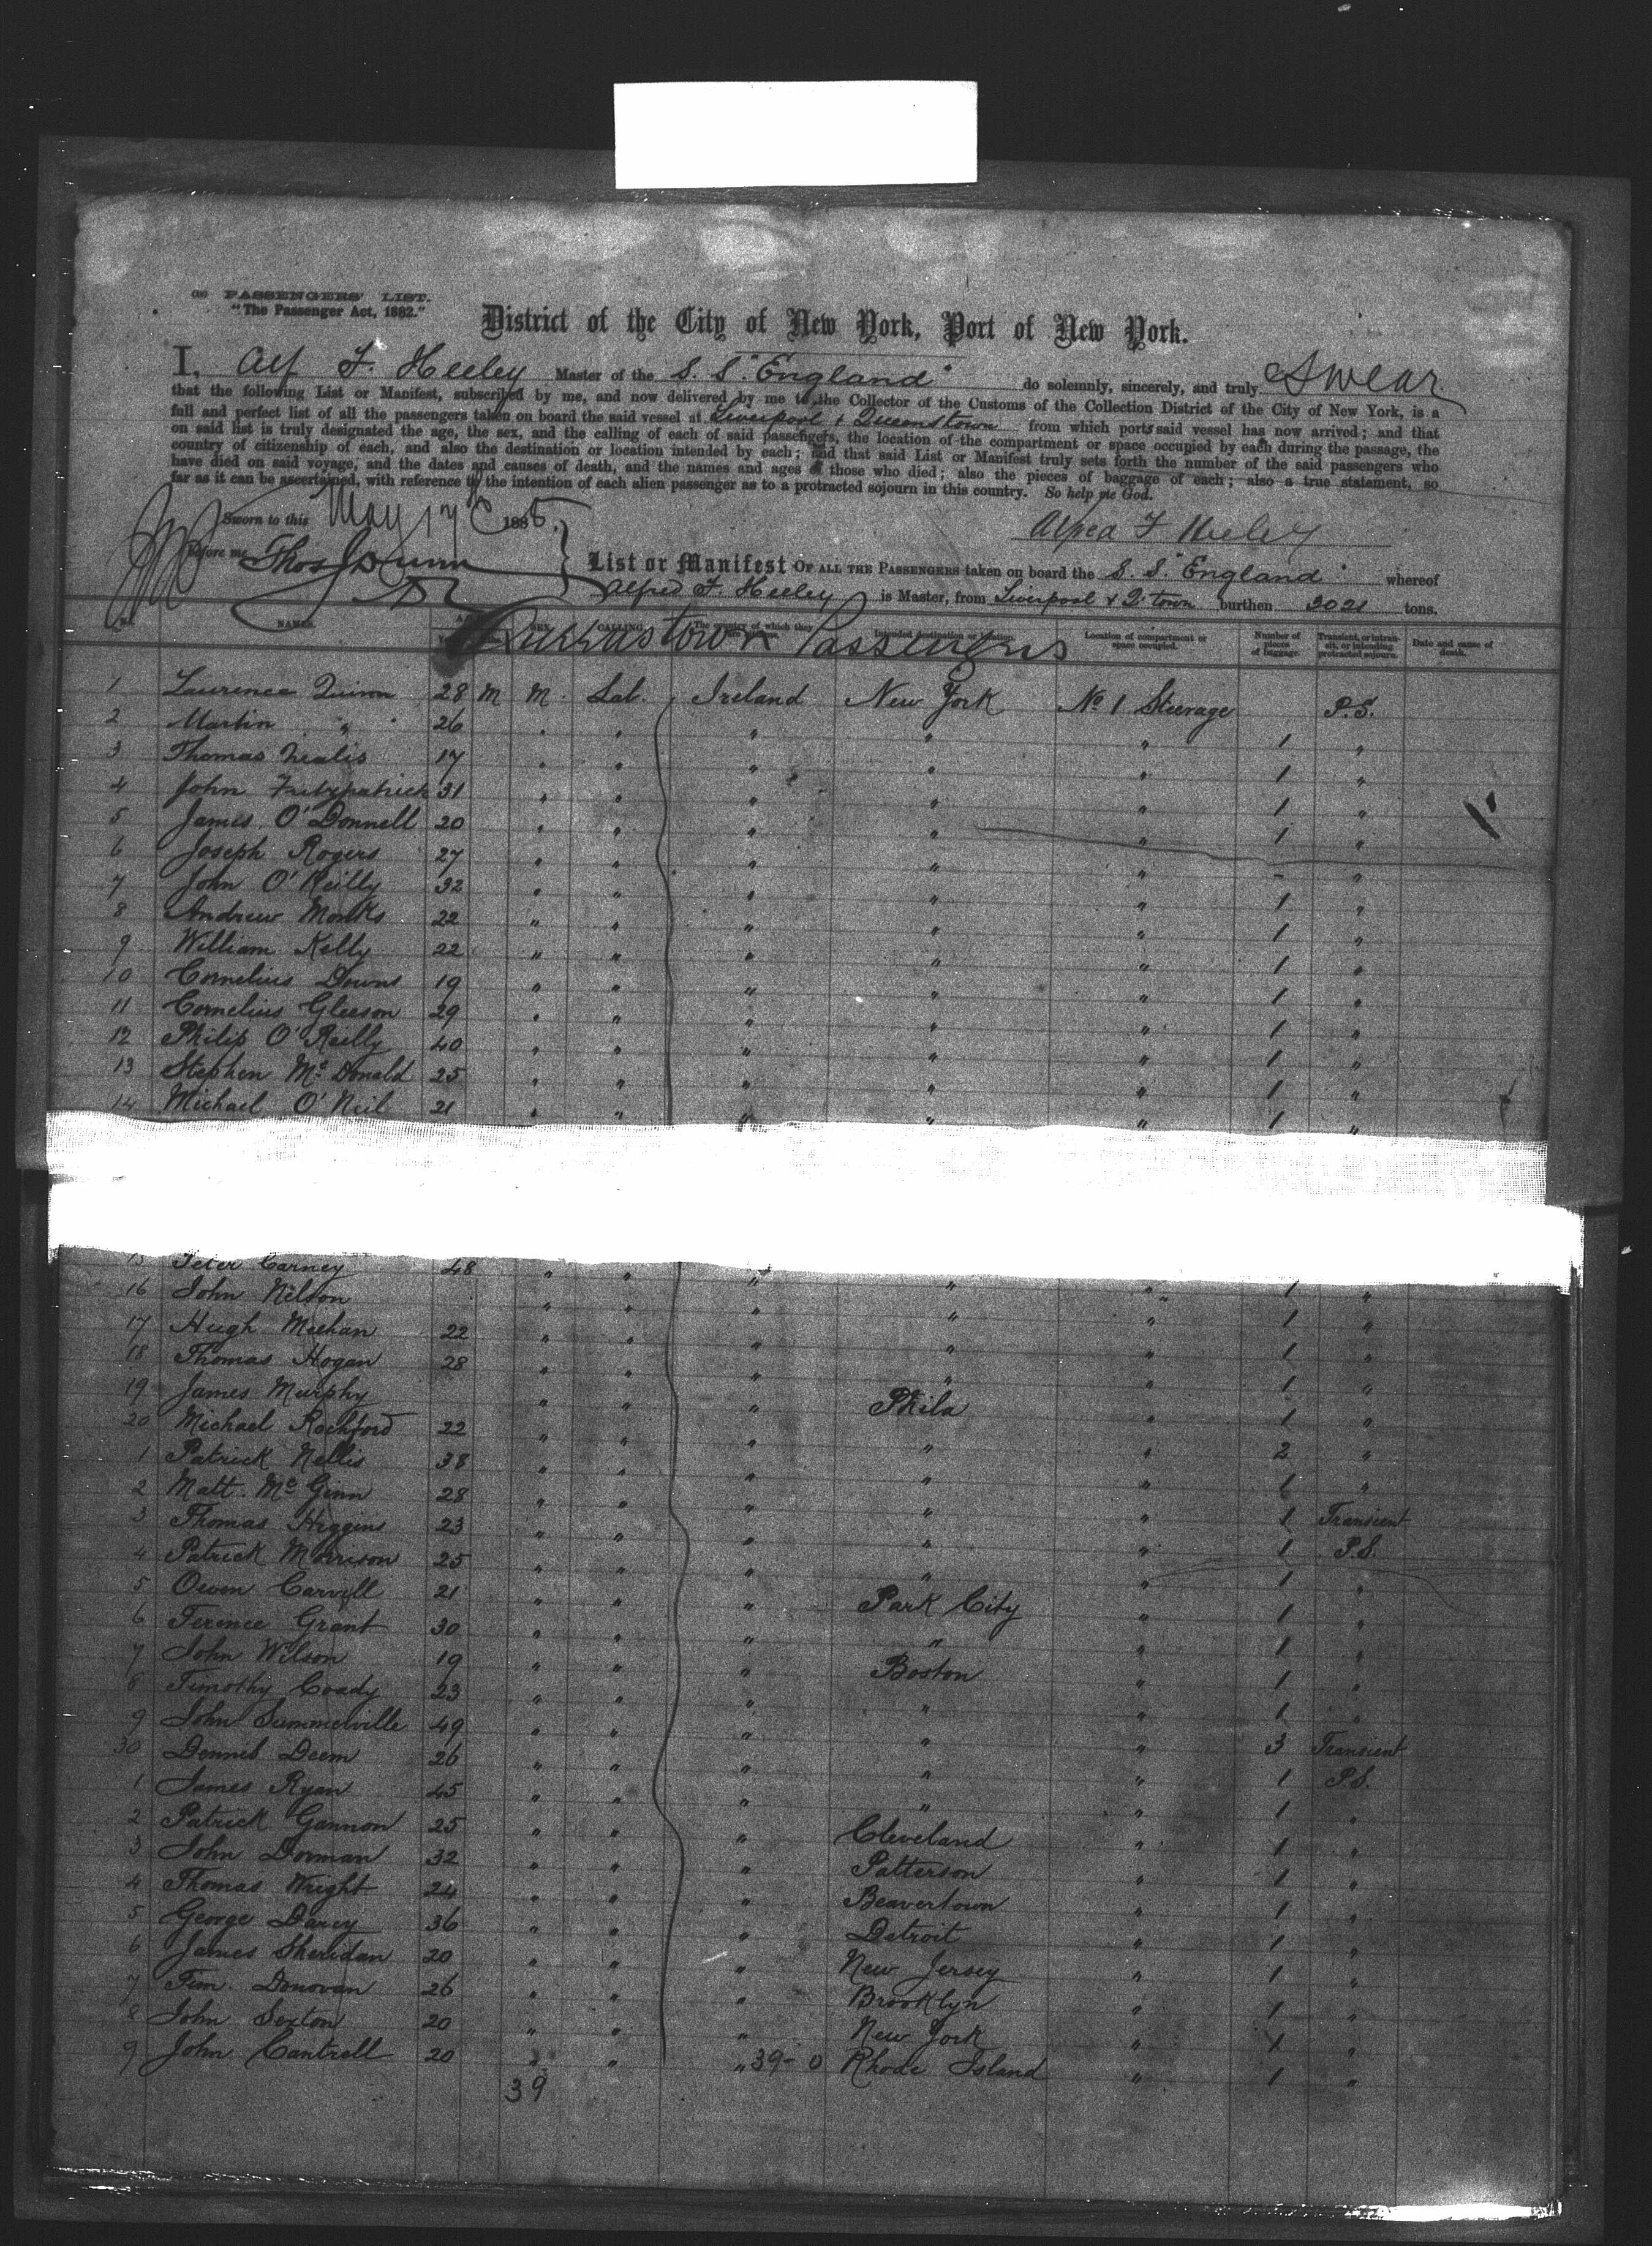 (18) PASSENGERS' LIST.
"The Passenger Act, 1882."
District of the City of New York, Port of New York.
I, Alf F. Heeley Master of the S. S. "England" do solemnly, sincerely, and truly Swear
that the following List or Manifest, subscribed by me, and now delivered by me to the Collector of the Customs of the Collection District of the City of New York, is a
full and perfect list of all the passengers taken on board the said vessel at Liverpool & Queenstown from which ports said vessel has now arrived; and that
on said list is truly designated the age, the sex, and the calling of each of said passengers, the location of the compartment or space occupied by each during the passage, the
country of citizenship of each, and also the destination or location intended by each; and that said List or Manifest truly sets forth the number of the said passengers who
have died on said voyage, and the dates and causes of death, and the names and ages of those who died; also the pieces of baggage of each; also a true statement, so
far as it can be ascertained, with reference to the intention of each alien passenger as to a protracted sojourn in this country. So help me God.
Sworn to this May 17 1885. Alfred F Heeley
Before me Thos J Dunn
List or Manifest OF ALL THE PASSENGERS taken on board the S. S. "England" whereof
Alfred F. Heeley is Master, from Liverpool & Q.town burthen 3021 tons.
NAMES. SEX. CALLING. The country of which they Intended destination or location. Location of compartment or space occupied. Number of pieces of baggage. Transient, or intransit, or intending protracted sojourn. Date and cause of death.
Queenstown Passengers
1 Laurence Quinn 28 M M. Lab. Ireland New York No 1 Steerage P.S.
2 Martin " 26 " " " " " 1 "
3 Thomas Nealis 17 " " " " " 1 "
4 John Fitzpatrick 31 " " " " " 1 "
5 James O'Donnell 20 " " " " " 1 "
6 Joseph Rogers 27 " " " " " - "
7 John O'Reilly 32 " " " " " 1 "
8 Andrew Monks 22 " " " " " 1 "
9 William Kelly 22 " " " " " 1 "
10 Cornelius Downs 19 " " " " " 1 "
11 Cornelius Gleeson 29 " " " " " 1 "
12 Philip O'Reilly 40 " " " " " 1 "
13 Stephen Mc Donald 25 " " " " " 1 "
14 Michael O'Neil 21 " " " " " 1 "
15 Peter Carney 48 " " " " " 1 "
16 John Nelson " " " " " 1 "
17 Hugh Meehan 22 " " " " " 1 "
18 Thomas Hogan 28 " " " " " 1 "
19 James Murphy " " " Phila " 1 "
20 Michael Rochford 22 " " " " " 2 "
1 Patrick Nellis 38 " " " " " 1 "
2 Matt. Mc Ginn 28 " " " " " 1 Transient
3 Thomas Higgins 23 " " " " " 1 P.S.
4 Patrick Morrison 25 " " " " " 1 "
5 Owen Carvill 21 " " " Park City " 1 "
6 Terence Grant 30 " " " " " 1 "
7 John Wilson 19 " " " Boston " 1 "
8 Timothy Coady 23 " " " " " 1 "
9 John Summerville 49 " " " " " 3 Transient
30 Dennis Deem 26 " " " " " 1 P.S.
1 James Ryan 45 " " " " " 1 "
2 Patrick Gannon 25 " " " Cleveland " 1 "
3 John Dorman 32 " " " Patterson " 1 "
4 Thomas Wright 24 " " " Beavertown " 1 "
5 George Darcy 36 " " " Detroit " 1 "
6 James Sheridan 20 " " " New Jersey " 1 "
7 Tim. Donovan 26 " " " Brooklyn " 1 "
8 John Sexton 20 " " " New York " 1 "
9 John Cantrell 20 " " " 39-0 Rhode Island " 1 "
39